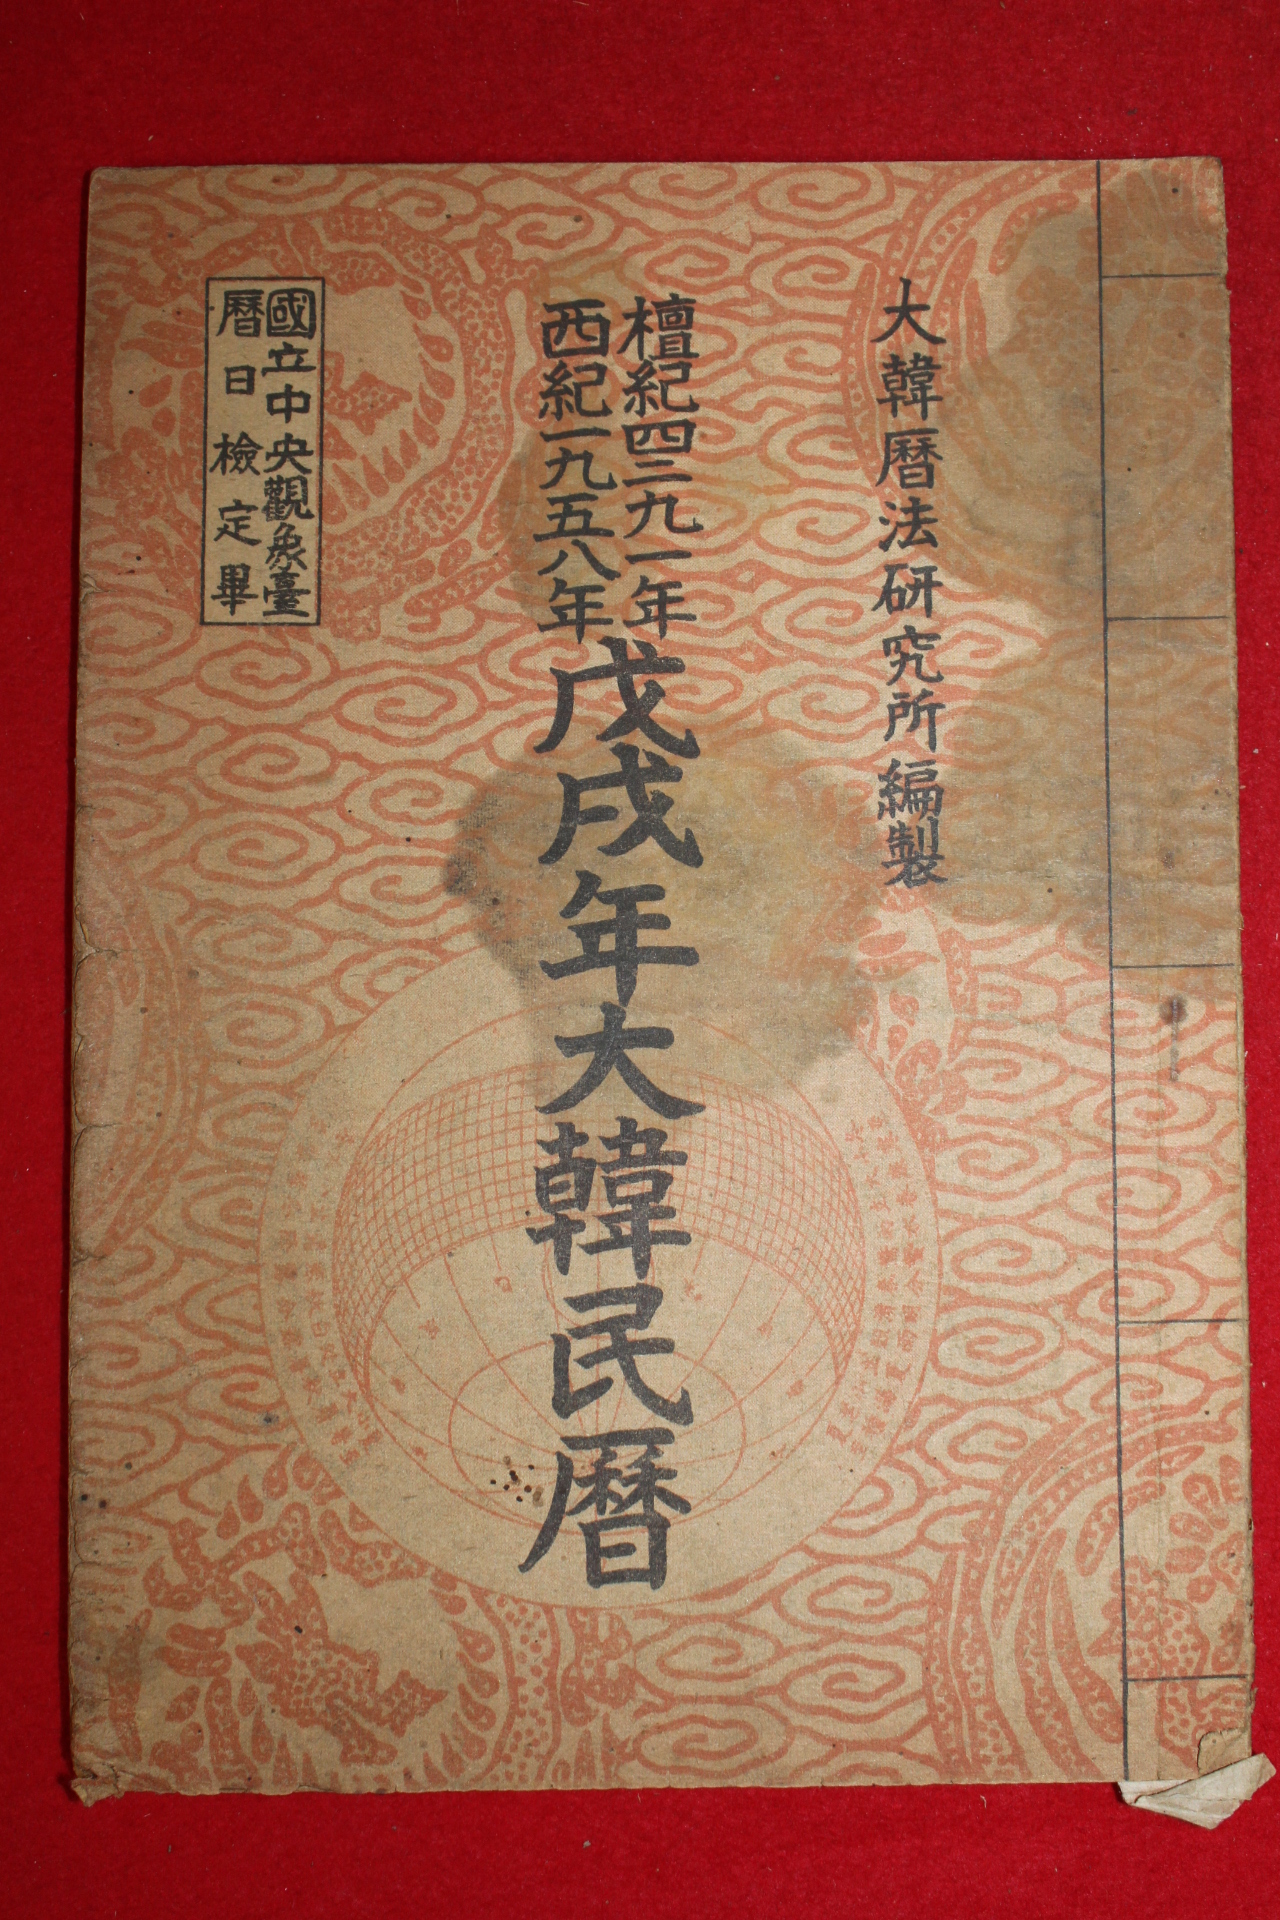 大韓曆法硏究所編製
檀紀四二九一年
西紀一九五八年
戊戌年大韓民曆
國立中央觀象臺
曆日檢定畢